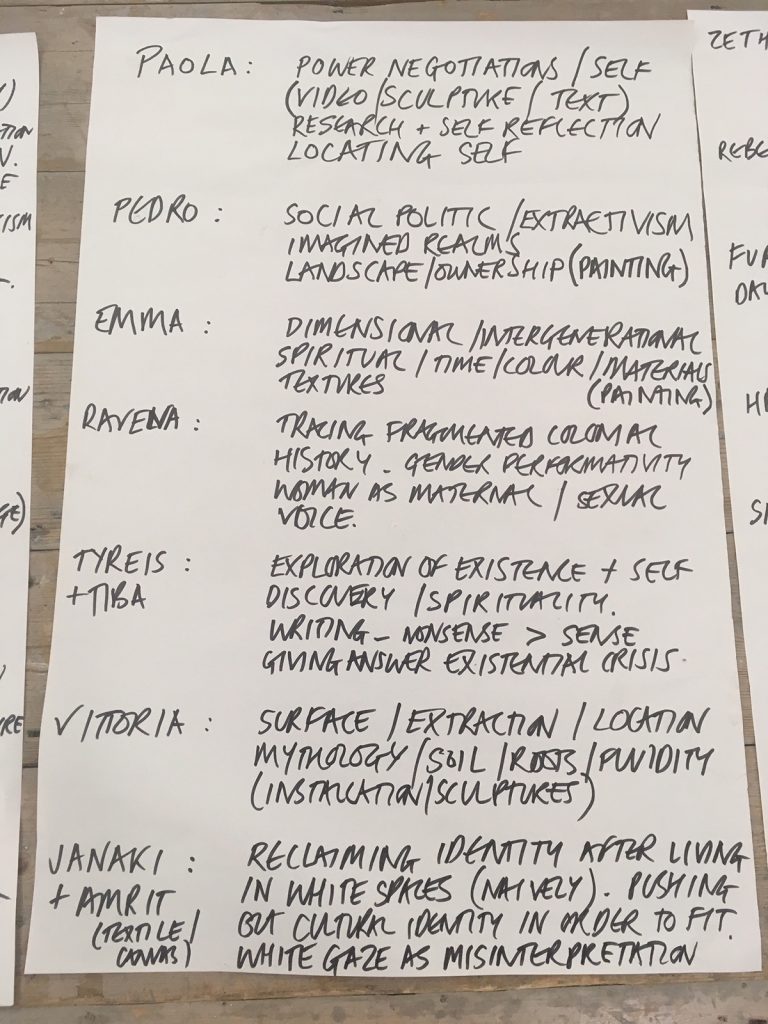 PAOLA: POWER NEGOTIATIONS / SELF
(VIDEO / SCULPTURE / TEXT)
RESEARCH + SELF REFLECTION
LOCATING SELF
PEDRO: SOCIAL POLITIC / EXTRACTIVISM
IMAGINED REALMS
LANDSCAPE / OWNERSHIP (PAINTING)
EMMA: DIMENSIONAL / INTERGENERATIONAL
SPIRITUAL / TIME / COLOUR / MATERIALS
TEXTURES (PAINTING)
RAVENA: TRACING FRAGMENTED COLONIAL
HISTORY - GENDER PERFORMATIVITY
WOMAN AS MATERNAL / SEXUAL
VOICE.
TYREIS: EXPLORATION OF EXISTENCE + SELF
+TIBA DISCOVERY / SPIRITUALITY.
WRITING - NONSENSE > SENSE
GIVING ANSWER EXISTENTIAL CRISIS.
VITTORIA: SURFACE / EXTRACTION / LOCATION
MYTHOLOGY / SOIL / ROOTS / FLUIDITY
(INSTALLATION / SCULPTURES)
JANAKI: RECLAIMING IDENTITY AFTER LIVING
+ AMRIT IN WHITE SPACES (NAIVELY). PUSHING
(TEXTILE / BUT CULTURAL IDENTITY IN ORDER TO FIT.
WHITE GAZE AS MISINTERPRETATION
ZETH
REBE